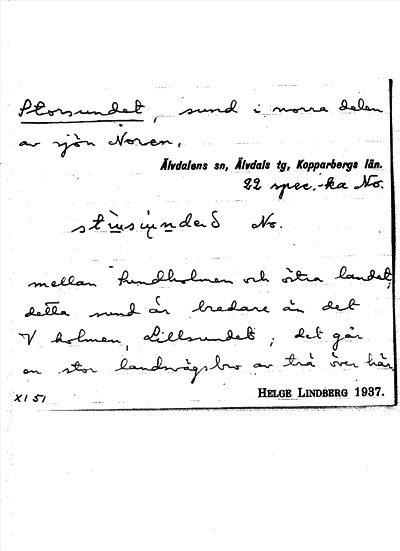 Storsundet, sund i norra delen
av sjön Noren.
Älvdalens sn, Älvdals tg, Kopparbergs län.
22 spec.-ka No.
No.
mellan Hundholmen och östra landet;
detta sund är bredare än det
V holmen, Lillsundet; det går
en stor landsvägsbro av trä över här
XI 51
HELGE LINDBERG 1937.